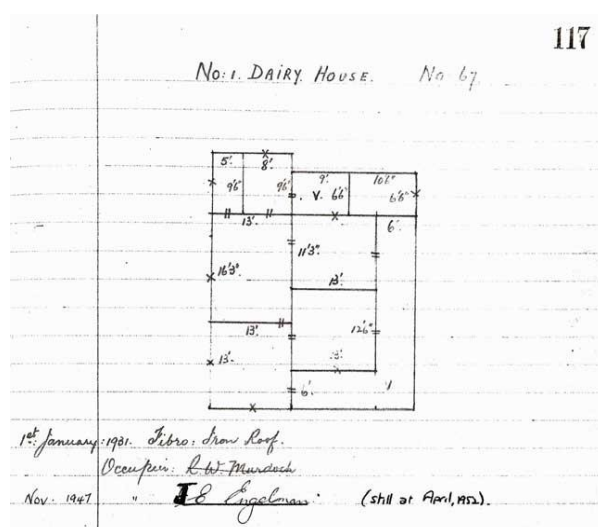 117
No: 1. DAIRY HOUSE. No 67
5'. 8'
9' 10'6"
9'6" 9'6" V. 6'6" 6'6"
13'. 6'
11'3"
16'3". 13'
13'. 12'6"
13'. 13'.
6'.
1st January: 1931. Fibro: Iron Roof.
Occupier: R. W. Murdoch
Nov. 1947 " E Engelman. (still at April, 1952).